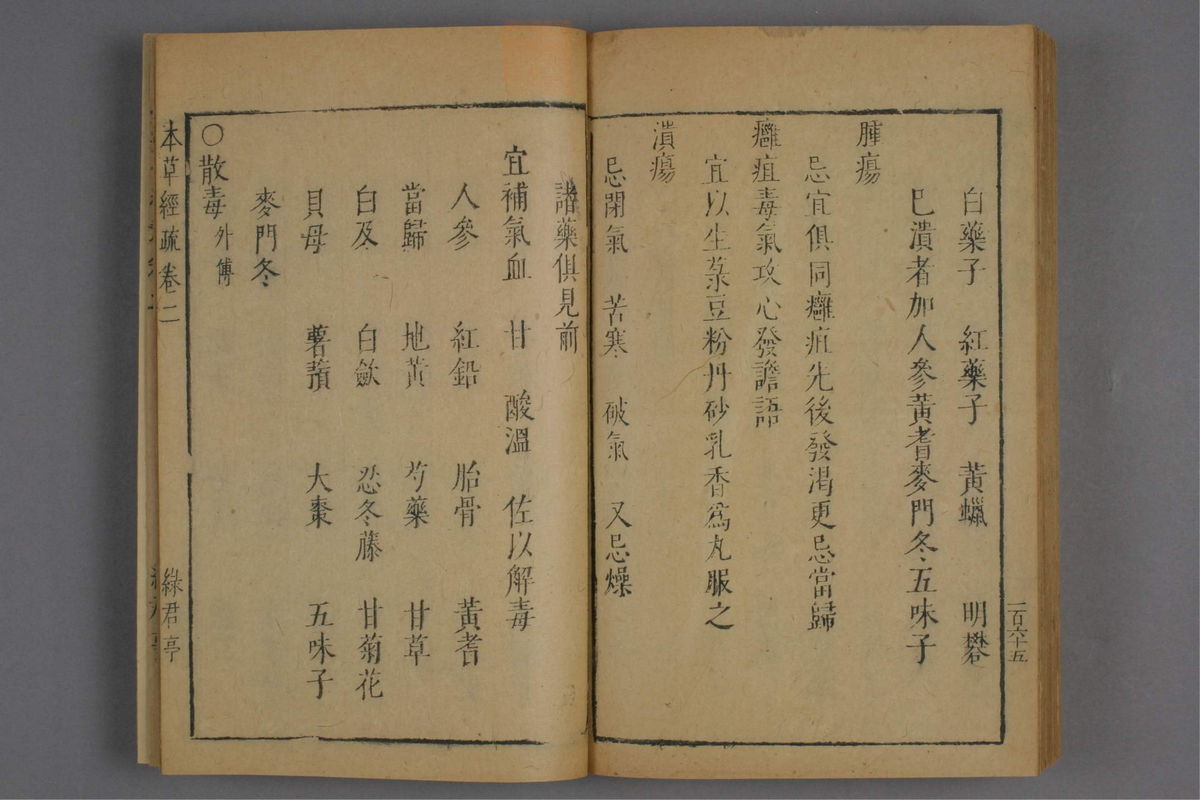 白藥子　紅藥子　黃蠟　明礬
巳潰者加人參黃耆麥門冬五味子
腫瘍
忌宜俱同癰疽先後發渴更忌當歸
癰疽毒氣攻心發譫語
宜以生菉豆粉丹砂乳香為丸服之
潰瘍
忌閉氣　苦寒　破氣　又忌燥
一百六十五
諸藥俱見前
宜補氣血　甘　酸溫　佐以解毒
人參　紅鉛　胎骨　黃耆
當歸　地黃　芍藥　甘草
白及　白歛　忍冬藤　甘菊花
貝母　薯蕷　大棗　五味子
麥門冬
○散毒外傅
本草經疏卷二　綠君亭